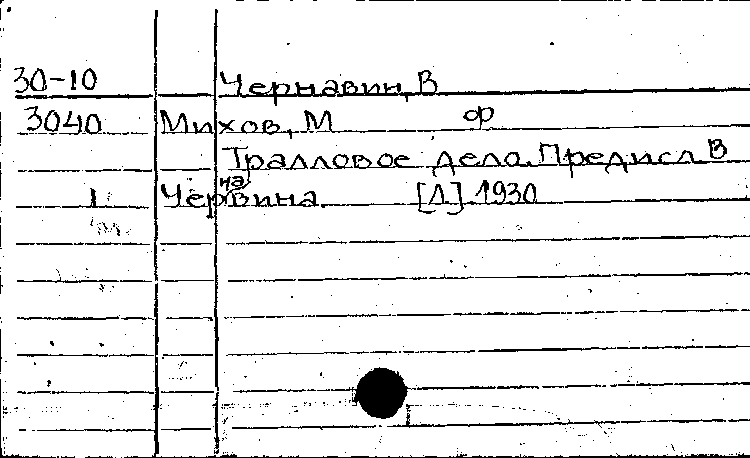 30-10 Чернавин, В
3040 Михов, М ф
Тралловое дело. Предисл В
1 Чернавина. [Л] 1930